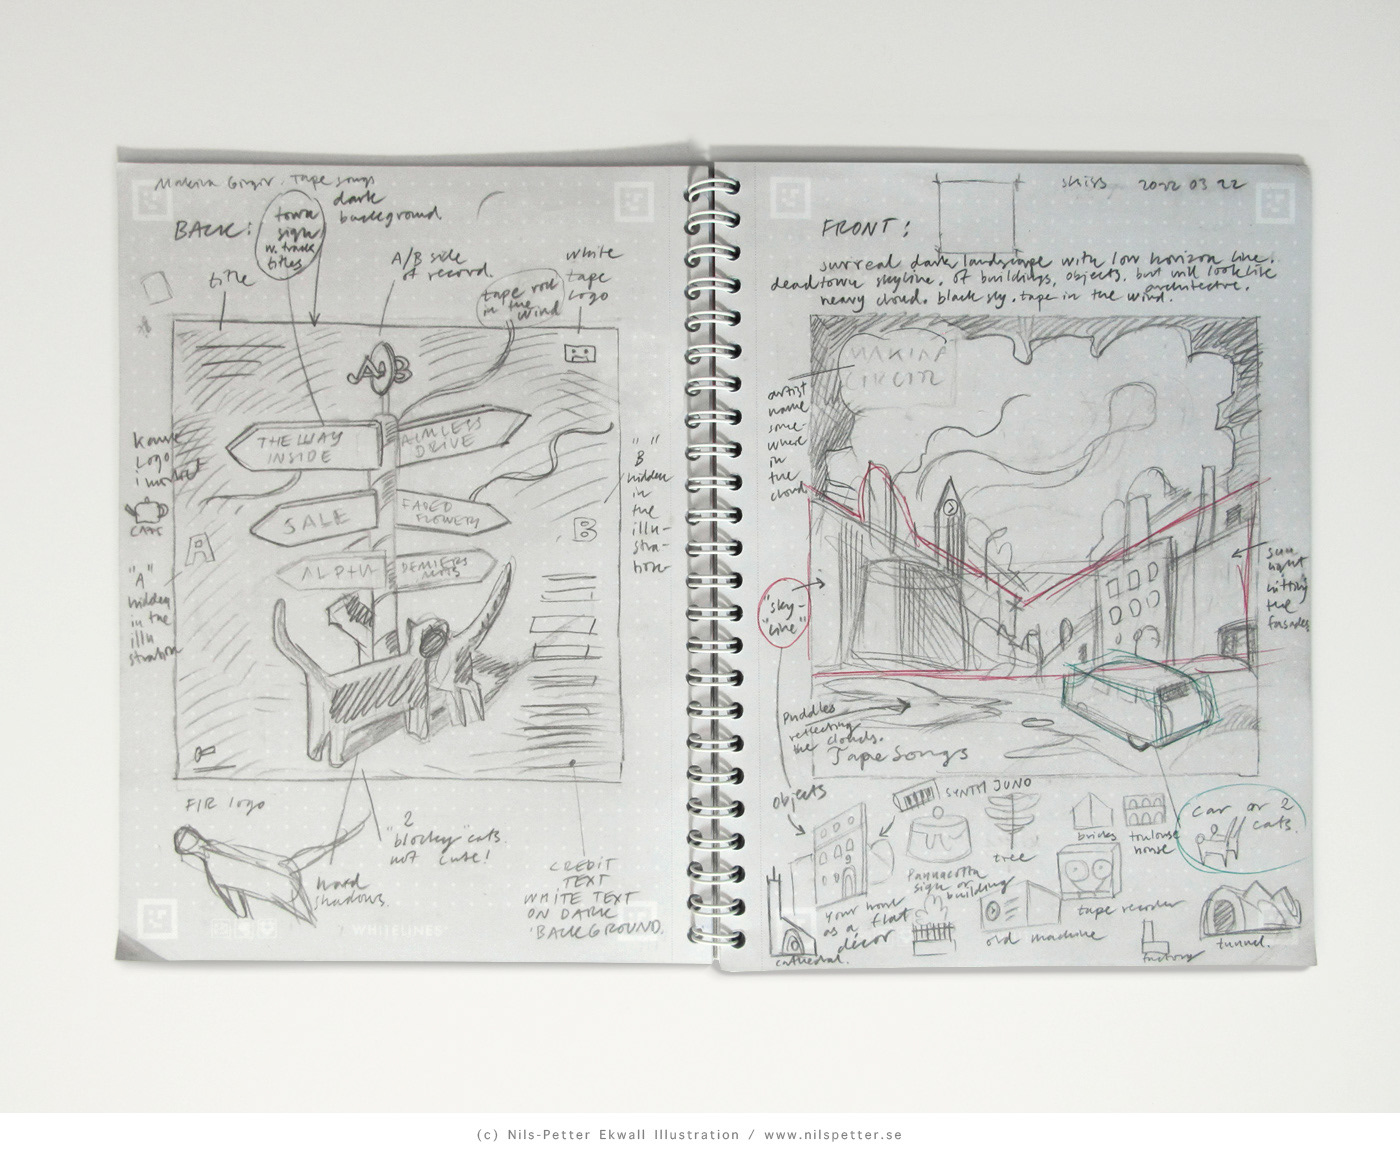 Makina Girgir. Tape songs
BACK:
town
sign
w. track
titles
dark
background
title
A/B side
of record.
tape roll
in the
wind
white
tape
logo
A B
THE WAY
INSIDE
AIMLESS
DRIVE
SALE
FADED
FLOWERS
ALPHA
DERNIERS
MOTS
logo
CAFE
A
"A"
hidden
in the
illu
stration
"B"
hidden
in
the
illu-
stra-
tion
B
FIR logo
2
"blocky" cats.
not cute!
hard
shadows.
CREDIT
TEXT
WHITE TEXT
ON DARK
BACKGROUND.
WHITELINES
skiss 2022 03 22
FRONT:
surreal dark landscape with low horizon line.
deadtown skyline. of buildings, objects, but will look like
architecture.
heavy cloud. black sky. tape in the wind.
MAKINA
GIRGIR
artist
name
some-
where
in
the
clouds
"sky-
line"
sun
light
hitting
the
fasades
Puddles
reflecting
the clouds.
Tape Songs
objects
SYNTH JUNO
car or 2
cats.
tree
bricks
toulouse
house
Pannacotta
sign on
building
your home
as a flat
décor
tape recorder
old machine
cathedral.
factory
tunnel.
(c) Nils-Petter Ekwall Illustration / www.nilspetter.se